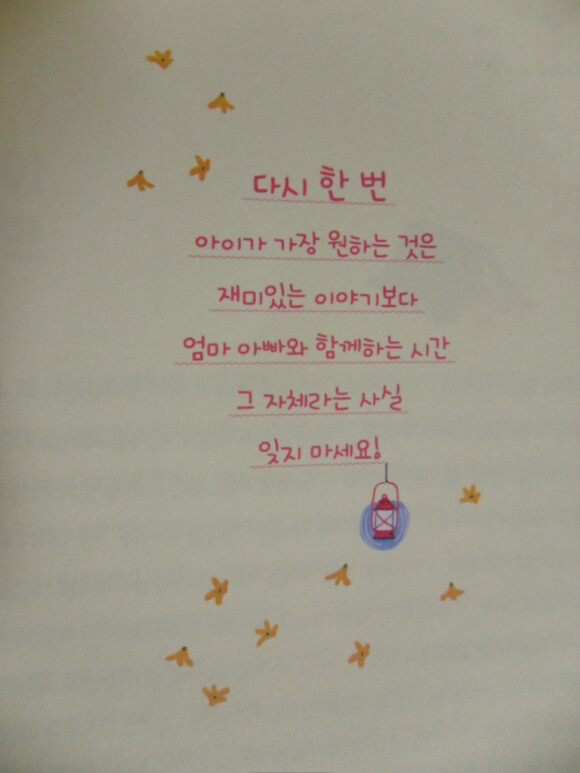 다시 한 번
아이가 가장 원하는 것은
재미있는 이야기보다
엄마 아빠와 함께하는 시간
그 자체라는 사실
잊지 마세요!